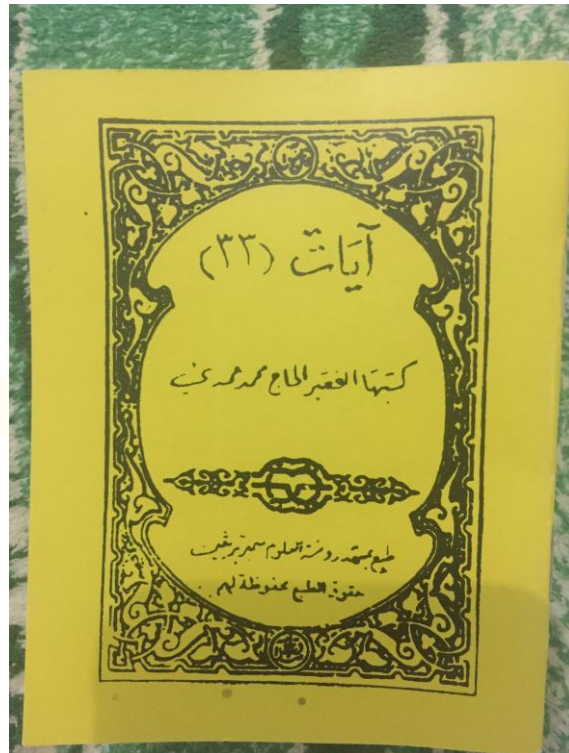 آيات (٣٣)
كتبها الفقير الحاج محمد
طبع بمعهد روضة العلوم
حقوق الطبع محفوظة لهم